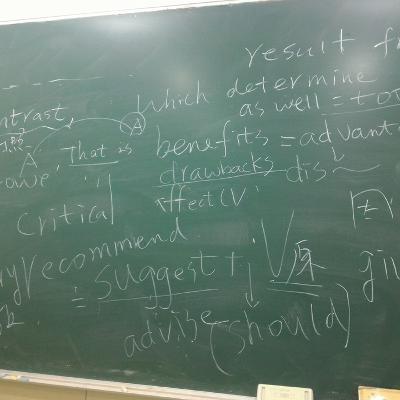 result fr
which determine
as well = to
ntrast,
A
A
That is
benefits = advant
drawbacks dis~
effect (V
Critical
recommend
= suggest + V原
advise (should)